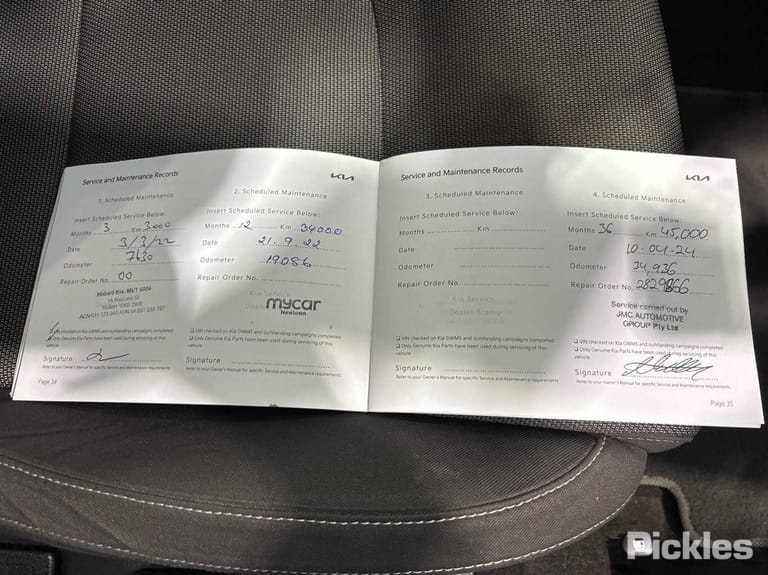 Service and Maintenance Records
KIA
1. Scheduled Maintenance
Insert Scheduled Service Below:
Months 3 Km 3000
Date 3/3/22
Odometer 7630
Repair Order No. 00
Hobart Kia MVT 6059
ACN 621 123 043 ABN
VIN checked on Kia GWMS and outstanding campaigns completed
Only Genuine Kia Parts have been used during servicing of this
vehicle
Signature
Refer to your Owner's Manual for specific Service and Maintenance requirements
Page 34
2. Scheduled Maintenance
Insert Scheduled Service Below:
Months 12 Km
Date 21.9.22
Odometer 19086
Repair Order No.
Kia Service
Dealer
mycar
Newtown
VIN checked on Kia GWMS and outstanding campaigns completed
Only Genuine Kia Parts have been used during servicing of this
vehicle
Signature
Refer to your Owner's Manual for specific Service and Maintenance requirements
Service and Maintenance Records
KIA
3. Scheduled Maintenance
Insert Scheduled Service Below:
Months Km
Date
Odometer
Repair Order No.
Kia Service
Dealer Stamp
VIN checked on Kia GWMS and outstanding campaigns completed
Only Genuine Kia Parts have been used during servicing of this
vehicle
Signature
Refer to your Owner's Manual for specific Service and Maintenance requirements
4. Scheduled Maintenance
Insert Scheduled Service Below:
Months 36 Km 45,000
Date 10.04.24
Odometer 34,936
Repair Order No.
Service carried out by
JMC AUTOMOTIVE
GROUP Pty Ltd
VIN checked on Kia GWMS and outstanding campaigns completed
Only Genuine Kia Parts have been used during servicing of this
vehicle
Signature
Refer to your Owner's Manual for specific Service and Maintenance requirements
Page 35
Pickles